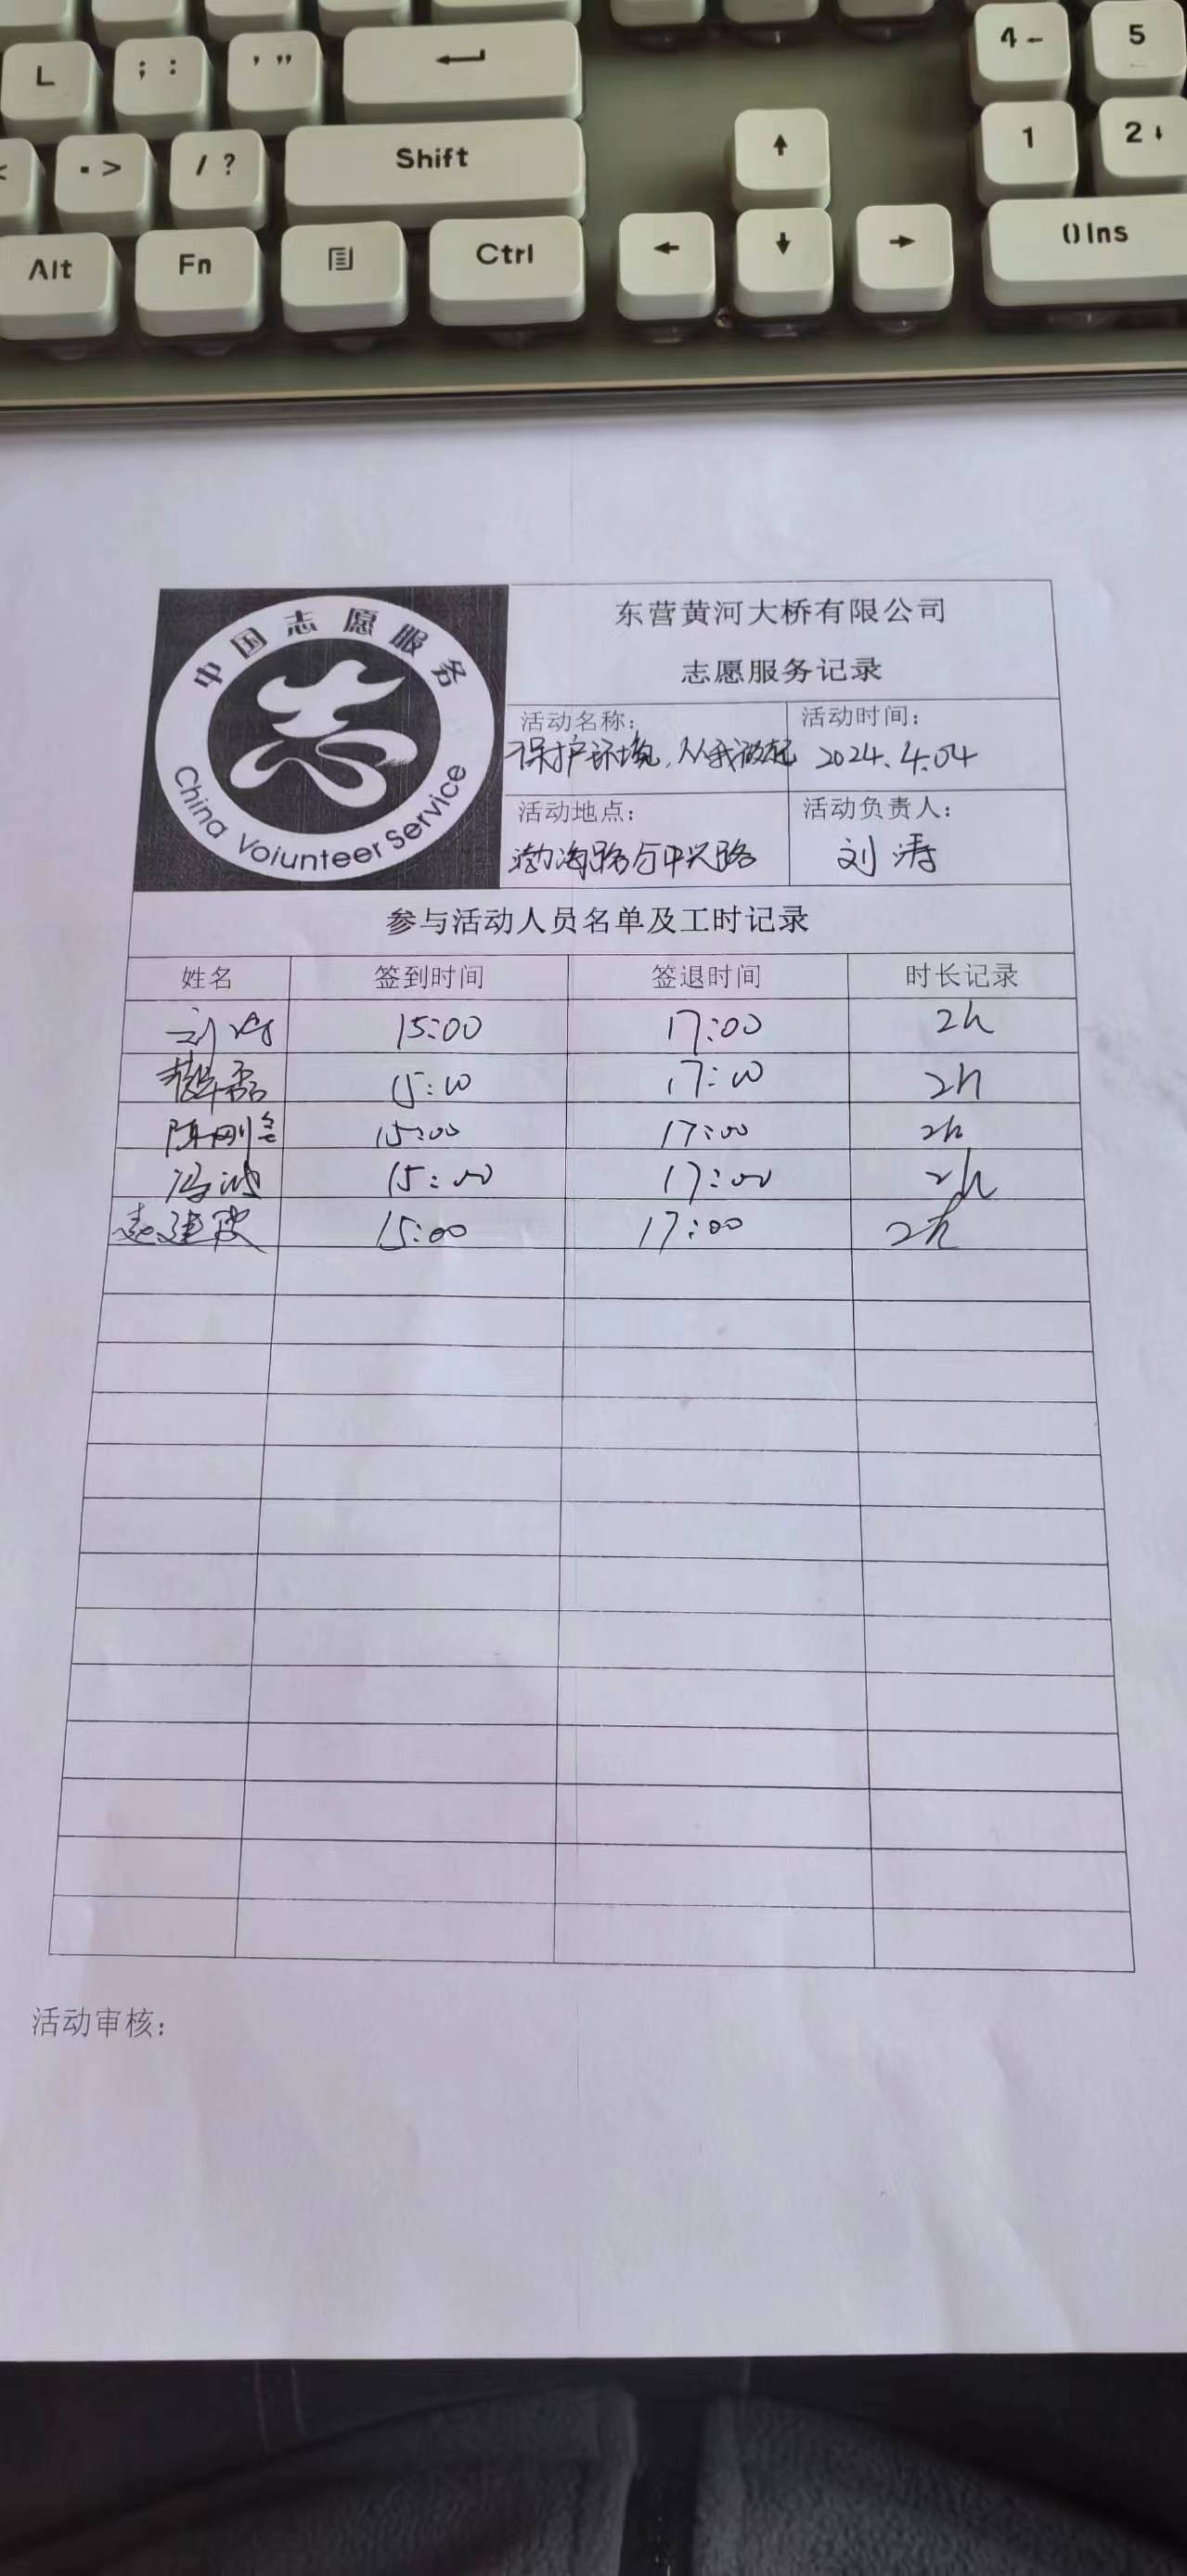 4 ←
5
L
; :
' "
1
2 ↓
. >
/ ?
Shift
0 Ins
Alt
Fn
Ctrl
中国志愿服务
China Voiunteer Service
东营黄河大桥有限公司
志愿服务记录
活动名称：
保护环境，从我做起
活动时间：
2024.4.04
活动地点：
渤海路与中兴路
活动负责人：
刘涛
参与活动人员名单及工时记录
姓名 签到时间 签退时间 时长记录
刘涛 15:00 17:00 2h
15:00 17:00 2h
陈刚 15:00 17:00 2h
冯波 15:00 17:00 2h
赵建波 15:00 17:00 2h
活动审核：